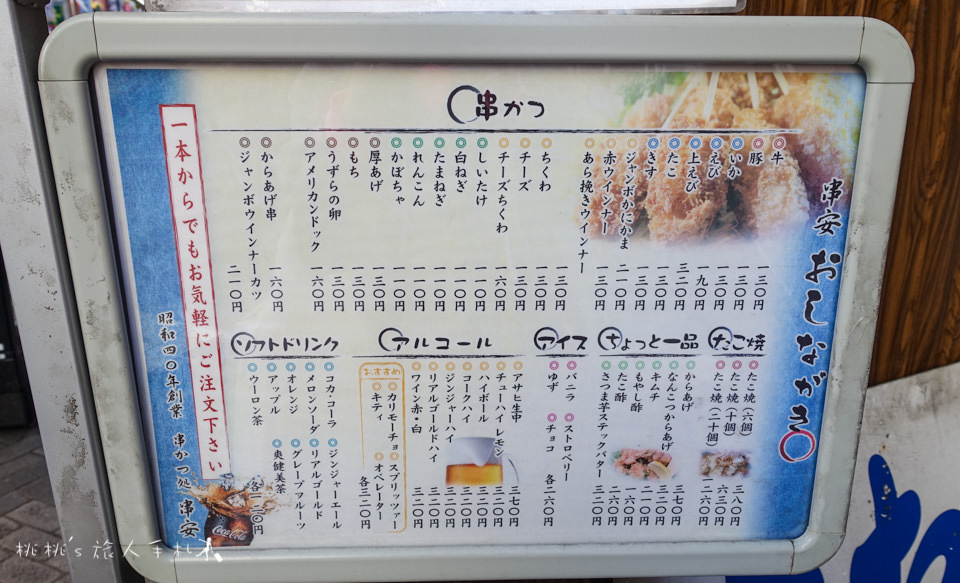 串安 おしながき
串かつ
牛 一三〇円
豚 一三〇円
いか 一三〇円
えび 一九〇円
上えび 三二〇円
たこ 一三〇円
きす 一三〇円
ジャンボかにかま 二一〇円
赤ウインナー 一三〇円
あら挽きウインナー 一三〇円
ちくわ 一三〇円
チーズ 一三〇円
チーズちくわ 一六〇円
しいたけ 一一〇円
白ねぎ 一一〇円
たまねぎ 一一〇円
れんこん 一一〇円
かぼちゃ 一一〇円
厚あげ 一三〇円
もち 一一〇円
うずらの卵 一三〇円
アメリカンドック 一六〇円
からあげ串 一六〇円
ジャンボウインナーカツ 二一〇円
たこ焼
たこ焼(六個) 三八〇円
たこ焼(十個) 六三〇円
たこ焼(二十個) 一二六〇円
ちょっと一品
からあげ 三七〇円
なんこつからあげ 三二〇円
キムチ 二一〇円
もやし酢 一六〇円
たこ酢 二一〇円
さつま芋スティックバター 三一〇円
アイス
バニラ ストロベリー
ゆず チョコ
各二六〇円
アルコール
アサヒ生中 三七〇円
チューハイレモン 三二〇円
ハイボール 三二〇円
コークハイ 三二〇円
ジンジャーハイ 三二〇円
リアルゴールドハイ 三二〇円
ワイン赤・白 三二〇円
おすすめ
カリモーチョ スプリッツァー
キティ オペレーター
各三二〇円
ソフトドリンク
コカ・コーラ ジンジャーエール
メロンソーダ リアルゴールド
オレンジ グレープフルーツ
アップル 爽健美茶
ウーロン茶
各二一〇円
一本からでもお気軽にご注文下さい
昭和四〇年創業 串かつ処 串安
Coca-Cola
桃桃's旅人手札